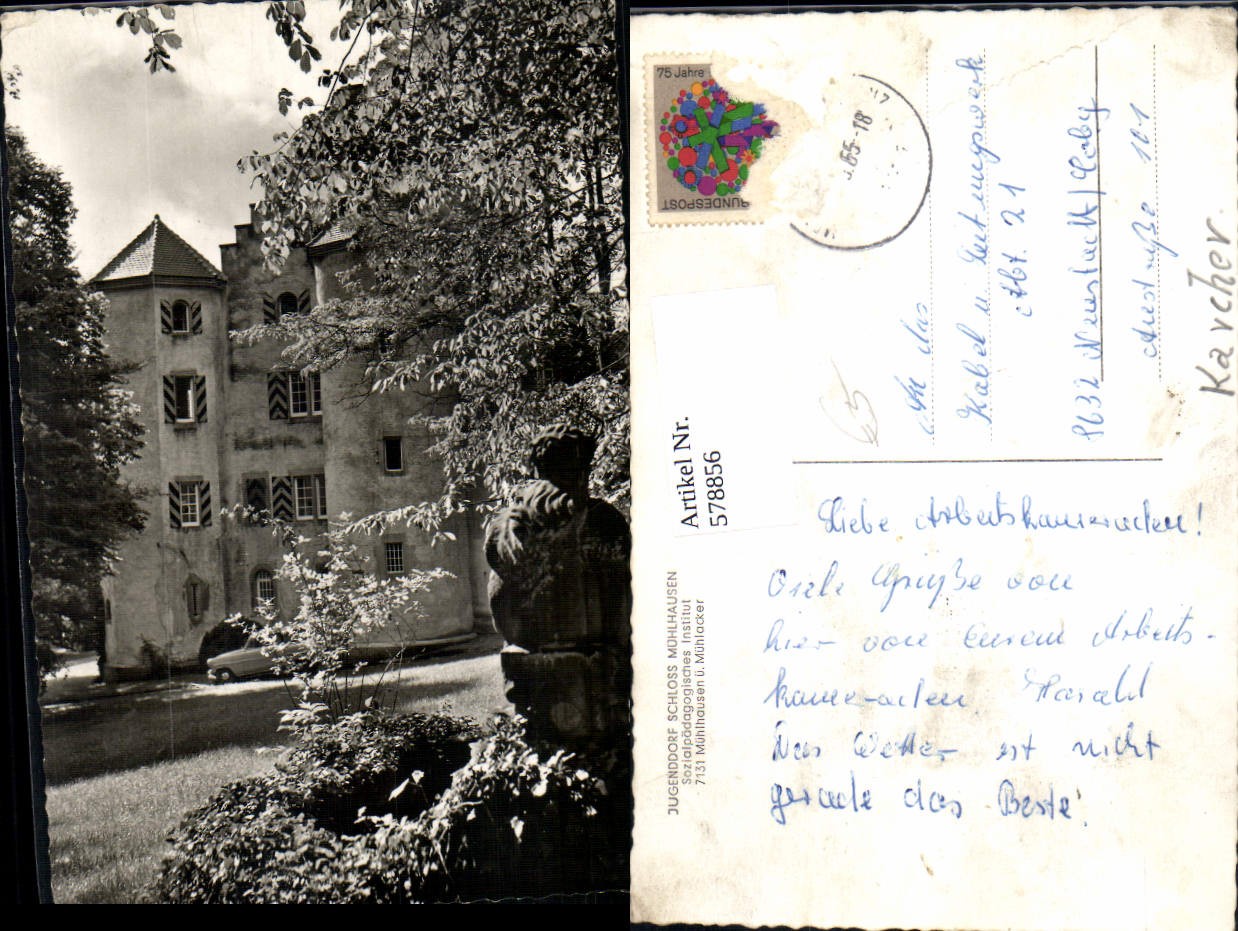 75 Jahre
BUNDESPOST
.65-18
An das
Kabel u Leitungswerk
Abt. 21
8632 Neustadt/Coby
Austraße 101
Karcher.
65
Artikel Nr.
578856
JUGENDDORF SCHLOSS MÜHLHAUSEN
Sozialpädagogisches Institut
7131 Mühlhausen ü. Mühlacker
Liebe Arbeitskameraden!
Viele Grüße von
hier von Eurem Arbeits-
kameraden Harald
Das Wetter ist nicht
gerade das Beste!